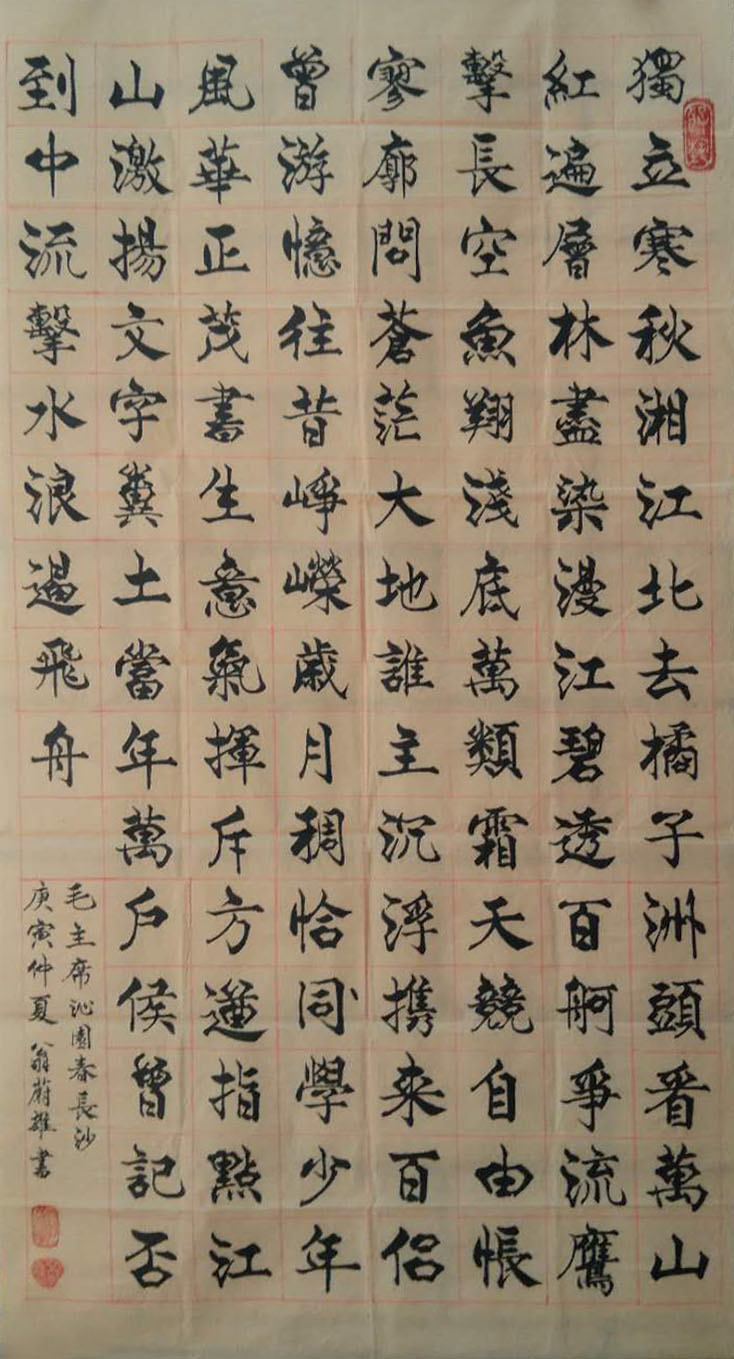 獨立寒秋湘江北去橘子洲頭看萬山
紅遍層林盡染漫江碧透百舸爭流鷹
擊長空魚翔淺底萬類霜天競自由悵
寥廓問蒼茫大地誰主沉浮携來百侣
曾游憶往昔崢嶸歲月稠恰同學少年
風華正茂書生意氣揮斥方遒指點江
山激揚文字糞土當年萬戶侯曾記否
到中流擊水浪遏飛舟
毛主席沁園春長沙
庚寅仲夏 翁蔚雄書